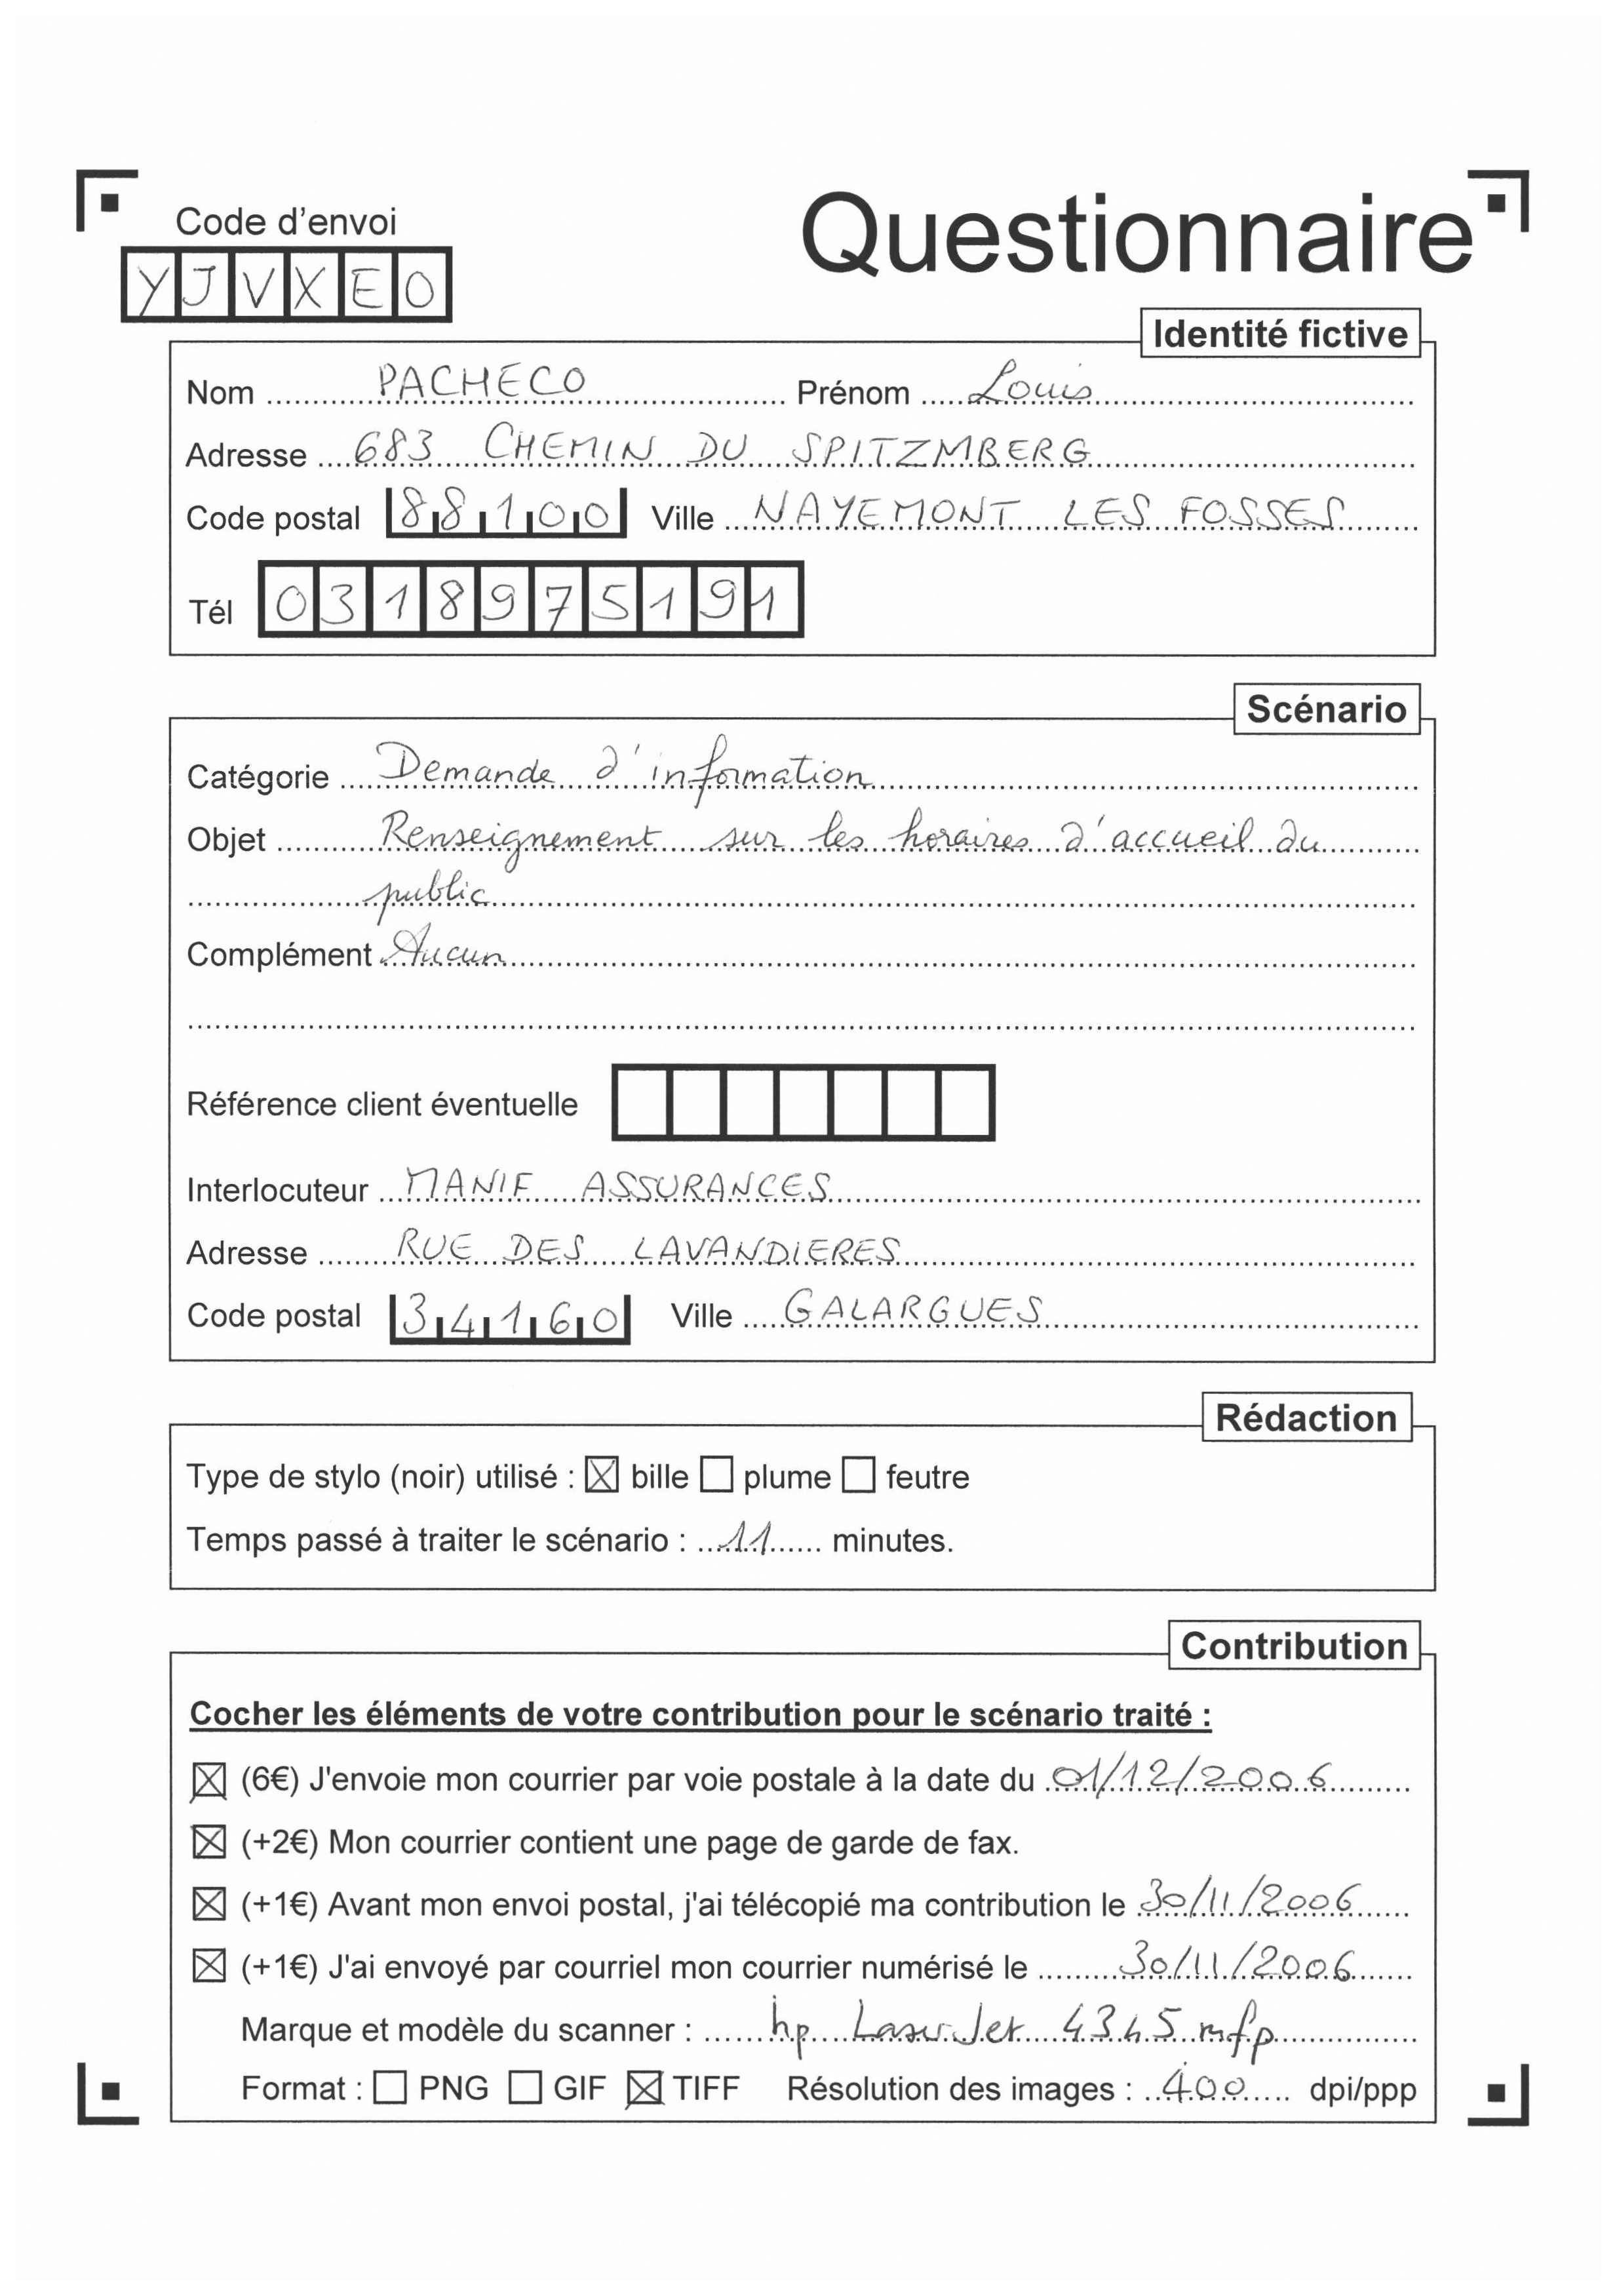 Code d'envoi
Questionnaire
YJVXEO
Identité fictive
Nom PACHECO Prénom Louis
Adresse 683 CHEMIN DU SPITZMBERG
Code postal 88100 Ville NAYEMONT LES FOSSES
Tél 0318975191
Scénario
Catégorie Demande d'information
Objet Renseignement sur les horaires d'accueil du
public
Complément Aucun
Référence client éventuelle
Interlocuteur MANIF ASSURANCES
Adresse RUE DES LAVANDIERES
Code postal 34160 Ville GALARGUES
Rédaction
Type de stylo (noir) utilisé : ☒ bille ☐ plume ☐ feutre
Temps passé à traiter le scénario : 11 minutes.
Contribution
Cocher les éléments de votre contribution pour le scénario traité :
☒ (6€) J'envoie mon courrier par voie postale à la date du 01/12/2006
☒ (+2€) Mon courrier contient une page de garde de fax.
☒ (+1€) Avant mon envoi postal, j'ai télécopié ma contribution le 30/11/2006
☒ (+1€) J'ai envoyé par courriel mon courrier numérisé le 30/11/2006
Marque et modèle du scanner : hp LaserJet 4345 mfp
Format : ☐ PNG ☐ GIF ☒ TIFF Résolution des images : 400 dpi/ppp